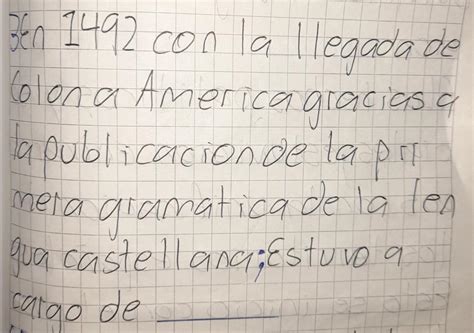 3En 1492 con la llegada de
Colon a America gracias a
la publicacion de la pri
mera gramatica de la len
gua castellana; Estuvo a
cargo de